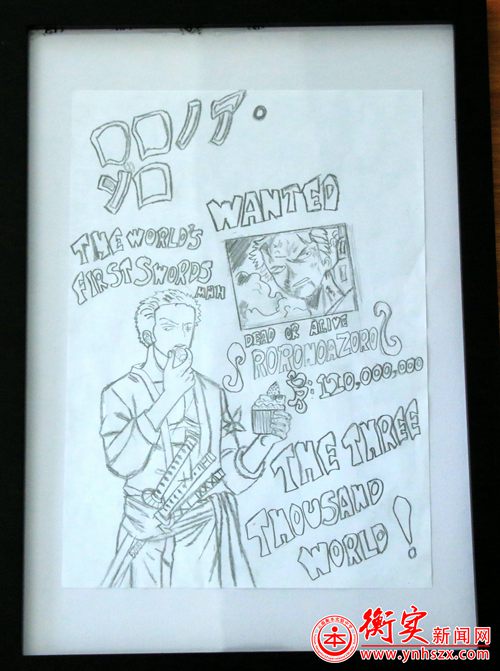 ロロノア。
ゾロ
THE WORLD'S
FIRST SWORDS
MAN
WANTED
DEAD OR ALIVE
RORONOAZORO
฿:120,000,000
THE THREE
THOUSAND
WORLD!
衡实新闻网
www.ynhszx.com